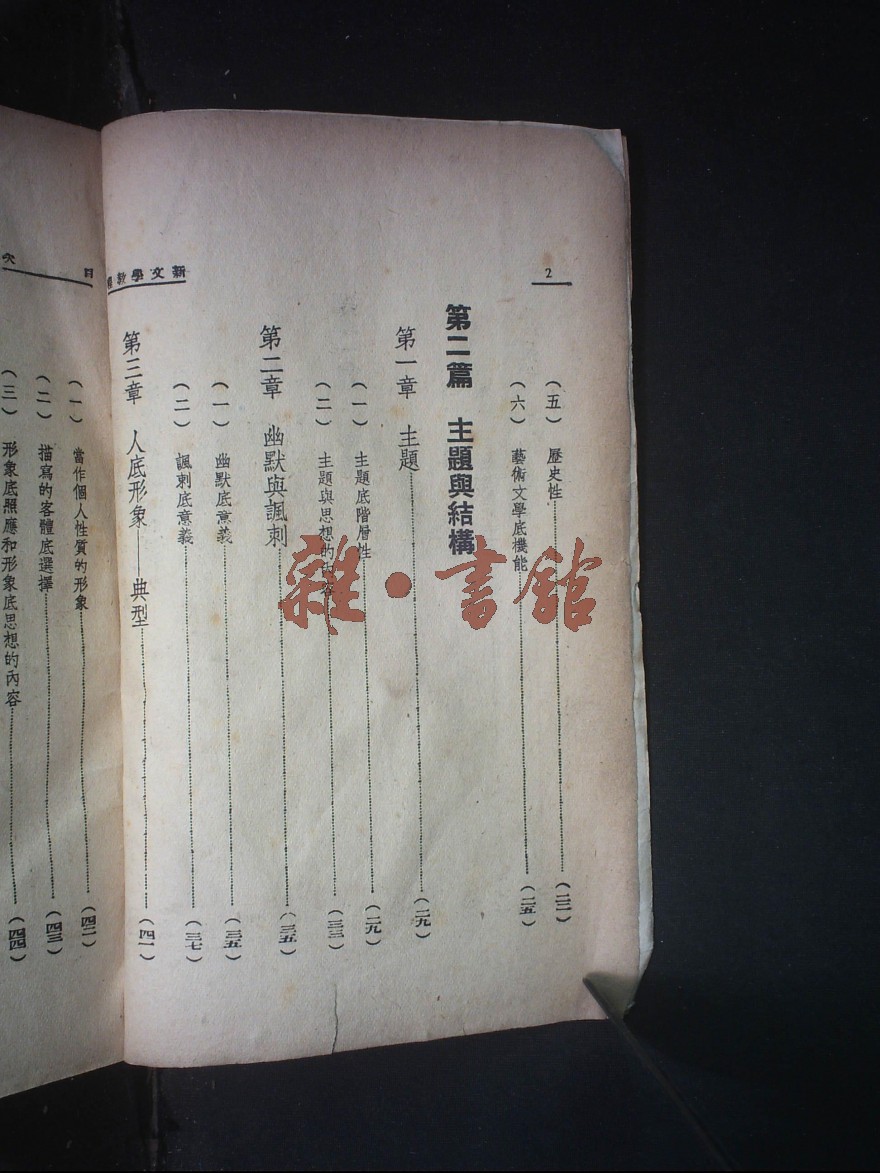 2
新文學教
（五）歷史性（二二）
（六）藝術文學底機能（二五）
第二篇 主題與結構
第一章 主題（二九）
（一）主題底階層性（二九）
（二）主題與思想的內容（三三）
第二章 幽默與諷刺（三五）
（一）幽默底意義（三五）
（二）諷刺底意義（三七）
第三章 人底形象——典型（四一）
目次
（一）當作個人性質的形象（四二）
（二）描寫的客體底選擇（四三）
（三）形象底照應和形象底思想的內容（四四）
雜·書館